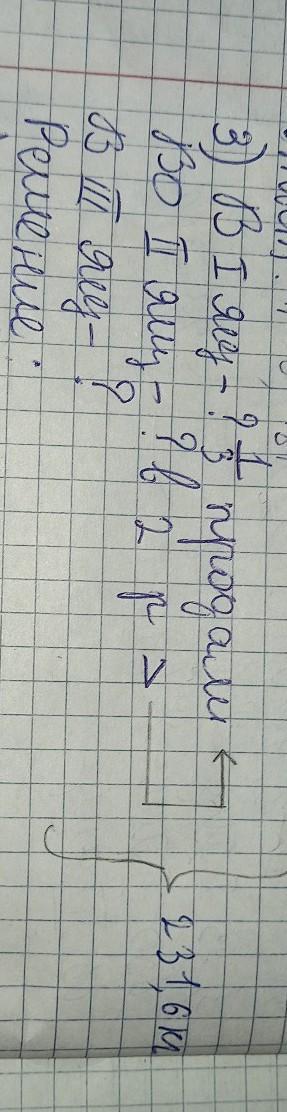 3) В I ящ - ? 1/3 продали
Во II ящ - ? в 2 р >
В III ящ - ?
Решение:
231,6 кг